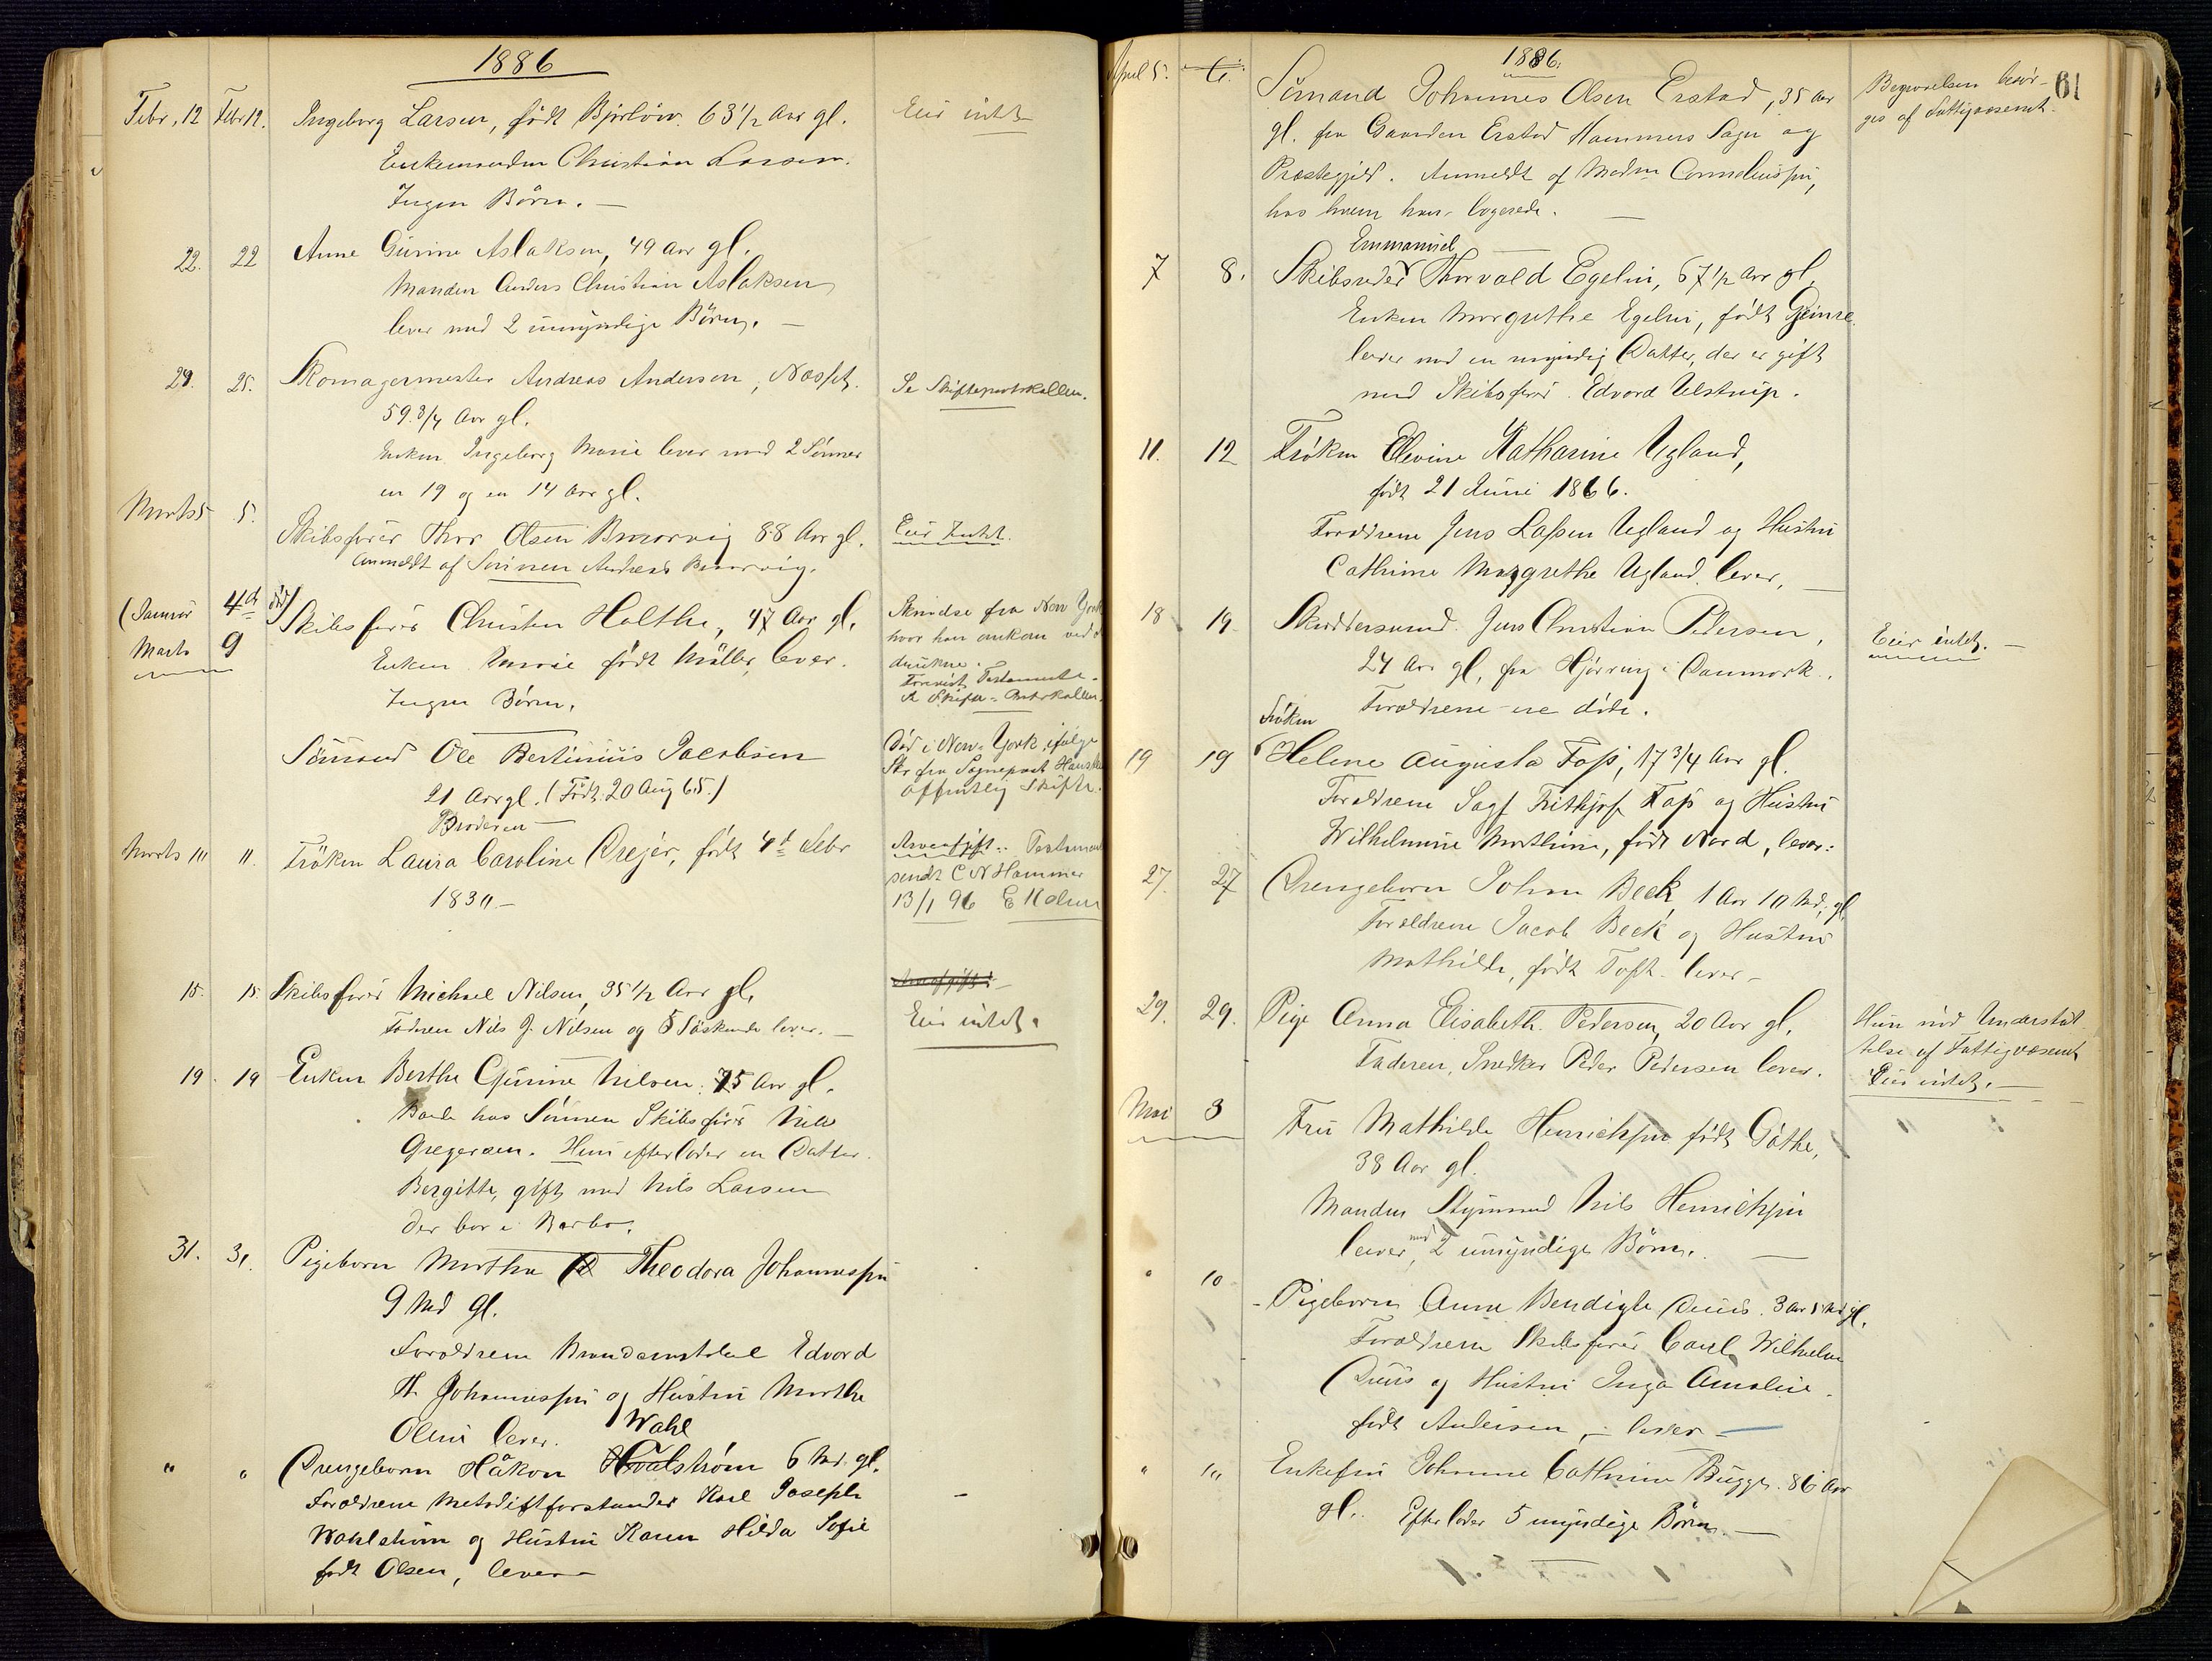 1886
Febr. 12 Febr 12. Ingeborg Larsen, født Bjorlöw. 63 1/2 Aar gl. Eier intet
Enkemanden Christian Larsen.
Ingen Børn. —
22. 22 Anne Gurine Aslaksen, 49 Aar gl.
Manden Anders Christian Aslaksen
lever med 2 umyndige Børn. —
24. 25. Skomagermester Andreas Andersen, Næsset. Se Skifteprotokollen.
59 3/4 Aar gl.
Enken Ingeborg Marie lever med 2 Sønner
en 19 og en 14 Aar gl.
Marts 5 5.
Skibsfører Thor Olsen 88 Aar gl. Eier Intet.
anmeldt af Sønnen Andreas
(Januar 4de død) Skibsfører Christen Holthe, 47 Aar gl. Skrivelse fra New York
Marts 9 hvor han omkom ved
Enken født Møller, lever. drukne.
Testamente.
Ingen Børn. Protokollen.
Sømand Ole Bertinius Jacobsen Død i New-York ifølge
Skr fra Sogneprest
21 Aar gl. (Født 20 Aug 65.) offentlig Skifte.
Broderen —
Marts 11 11. Frøken Laura Caroline Drejer, født 4d Febr Arveafgift.
sendt C N Hammer
1830 — 13/1 96
15. 15. Skibsfører Michael Nilsen, 35 1/2 Aar gl. Arveafgift
Faderen Nils J. Nilsen og 5 Søskende lever. — Eier intet.
19. 19 Enken Berthe Gurine Nilsen. 75 Aar gl.
Boede hos Sønnen Skibsfører Nils
Gregersen. Hun efterlader en Datter
Bergitte, gift med Nils Larsen
der bor i Barbo.
31. 31. Pigebarn Marthe Theodora Johannessen
9 Md gl.
Forældrene Brandkonstabel Edvard
A. Johannessen og Hustru Marthe
Oline lever. Wahl
" " Drengebarn Håkon Hvalstrøm 6 Md. gl.
Forældrene Metodistforstander Karl Joseph
Wahlstrøm og Hustru Karen Hilda Sofie
født Olsen, lever —
61
1886.
April 5. 6. Sømand Johannes Olsen Erstad, 35 Aar Begravelsen besør-
gl. fra Gaarden Erstad Hammers Sogn og ges af Fattigvæsenet.
Præstegjeld. Anmeldt af Madm Corneliussen,
hos hvem han logerede. —
Emmanuel
7 8. Skibsreder Thorvald Egelin, 67 1/2 Aar gl.
Enken Margrethe Egelin, født
lever med en myndig Datter, der er gift
med Skibsfører Edvard Ulstrup.
11. 12 Frøken Elevine Katharine Ugland,
født 21 Juni 1866.
Forældrene Jens Lassen Ugland og Hustru
Cathrine Margrethe Ugland lever,
18 19. Skræddersvend Jens Christian Pedersen, Eier intet. —
24 Aar gl, fra Hjørring i Danmark.
Forældrene ere døde.
Frøken
19 19 Helene Augusta Foss, 17 3/4 Aar gl.
Forældrene Sagf Frithjof Foss og Hustru
Wilhelmine Mathine, født Nord, lever.
27. 27 Drengebarn Johan Beck 1 Aar 10 Md. gl.
Forældrene Jacob Beck og Hustru
Mathilde, født Toft lever —
29. 29. Pige Anna Elisabeth Pedersen, 20 Aar gl. Hun nød Understøt
Faderen, Snedker Peder Pedersen lever. telse af Fattigvæsenet
Eier intet. —
Mai 3 Fru Mathilde Henrichsen født Göthe,
38 Aar gl.
Manden Styrmand Nils Henrichsen
lever, med 2 umyndige Børn. —
" 10 Pigebarn Anne Bendigte Duus. 3 Aar 5 Md gl.
Forældrene Skibsfører Carl Wilhelm
Duus og Hustru Inga Amalie
født Andersen, — lever —
" 10 Enkefru Johanne Cathrine Bugge. 86 Aar
gl. Efterlader 5 myndige Børn. —